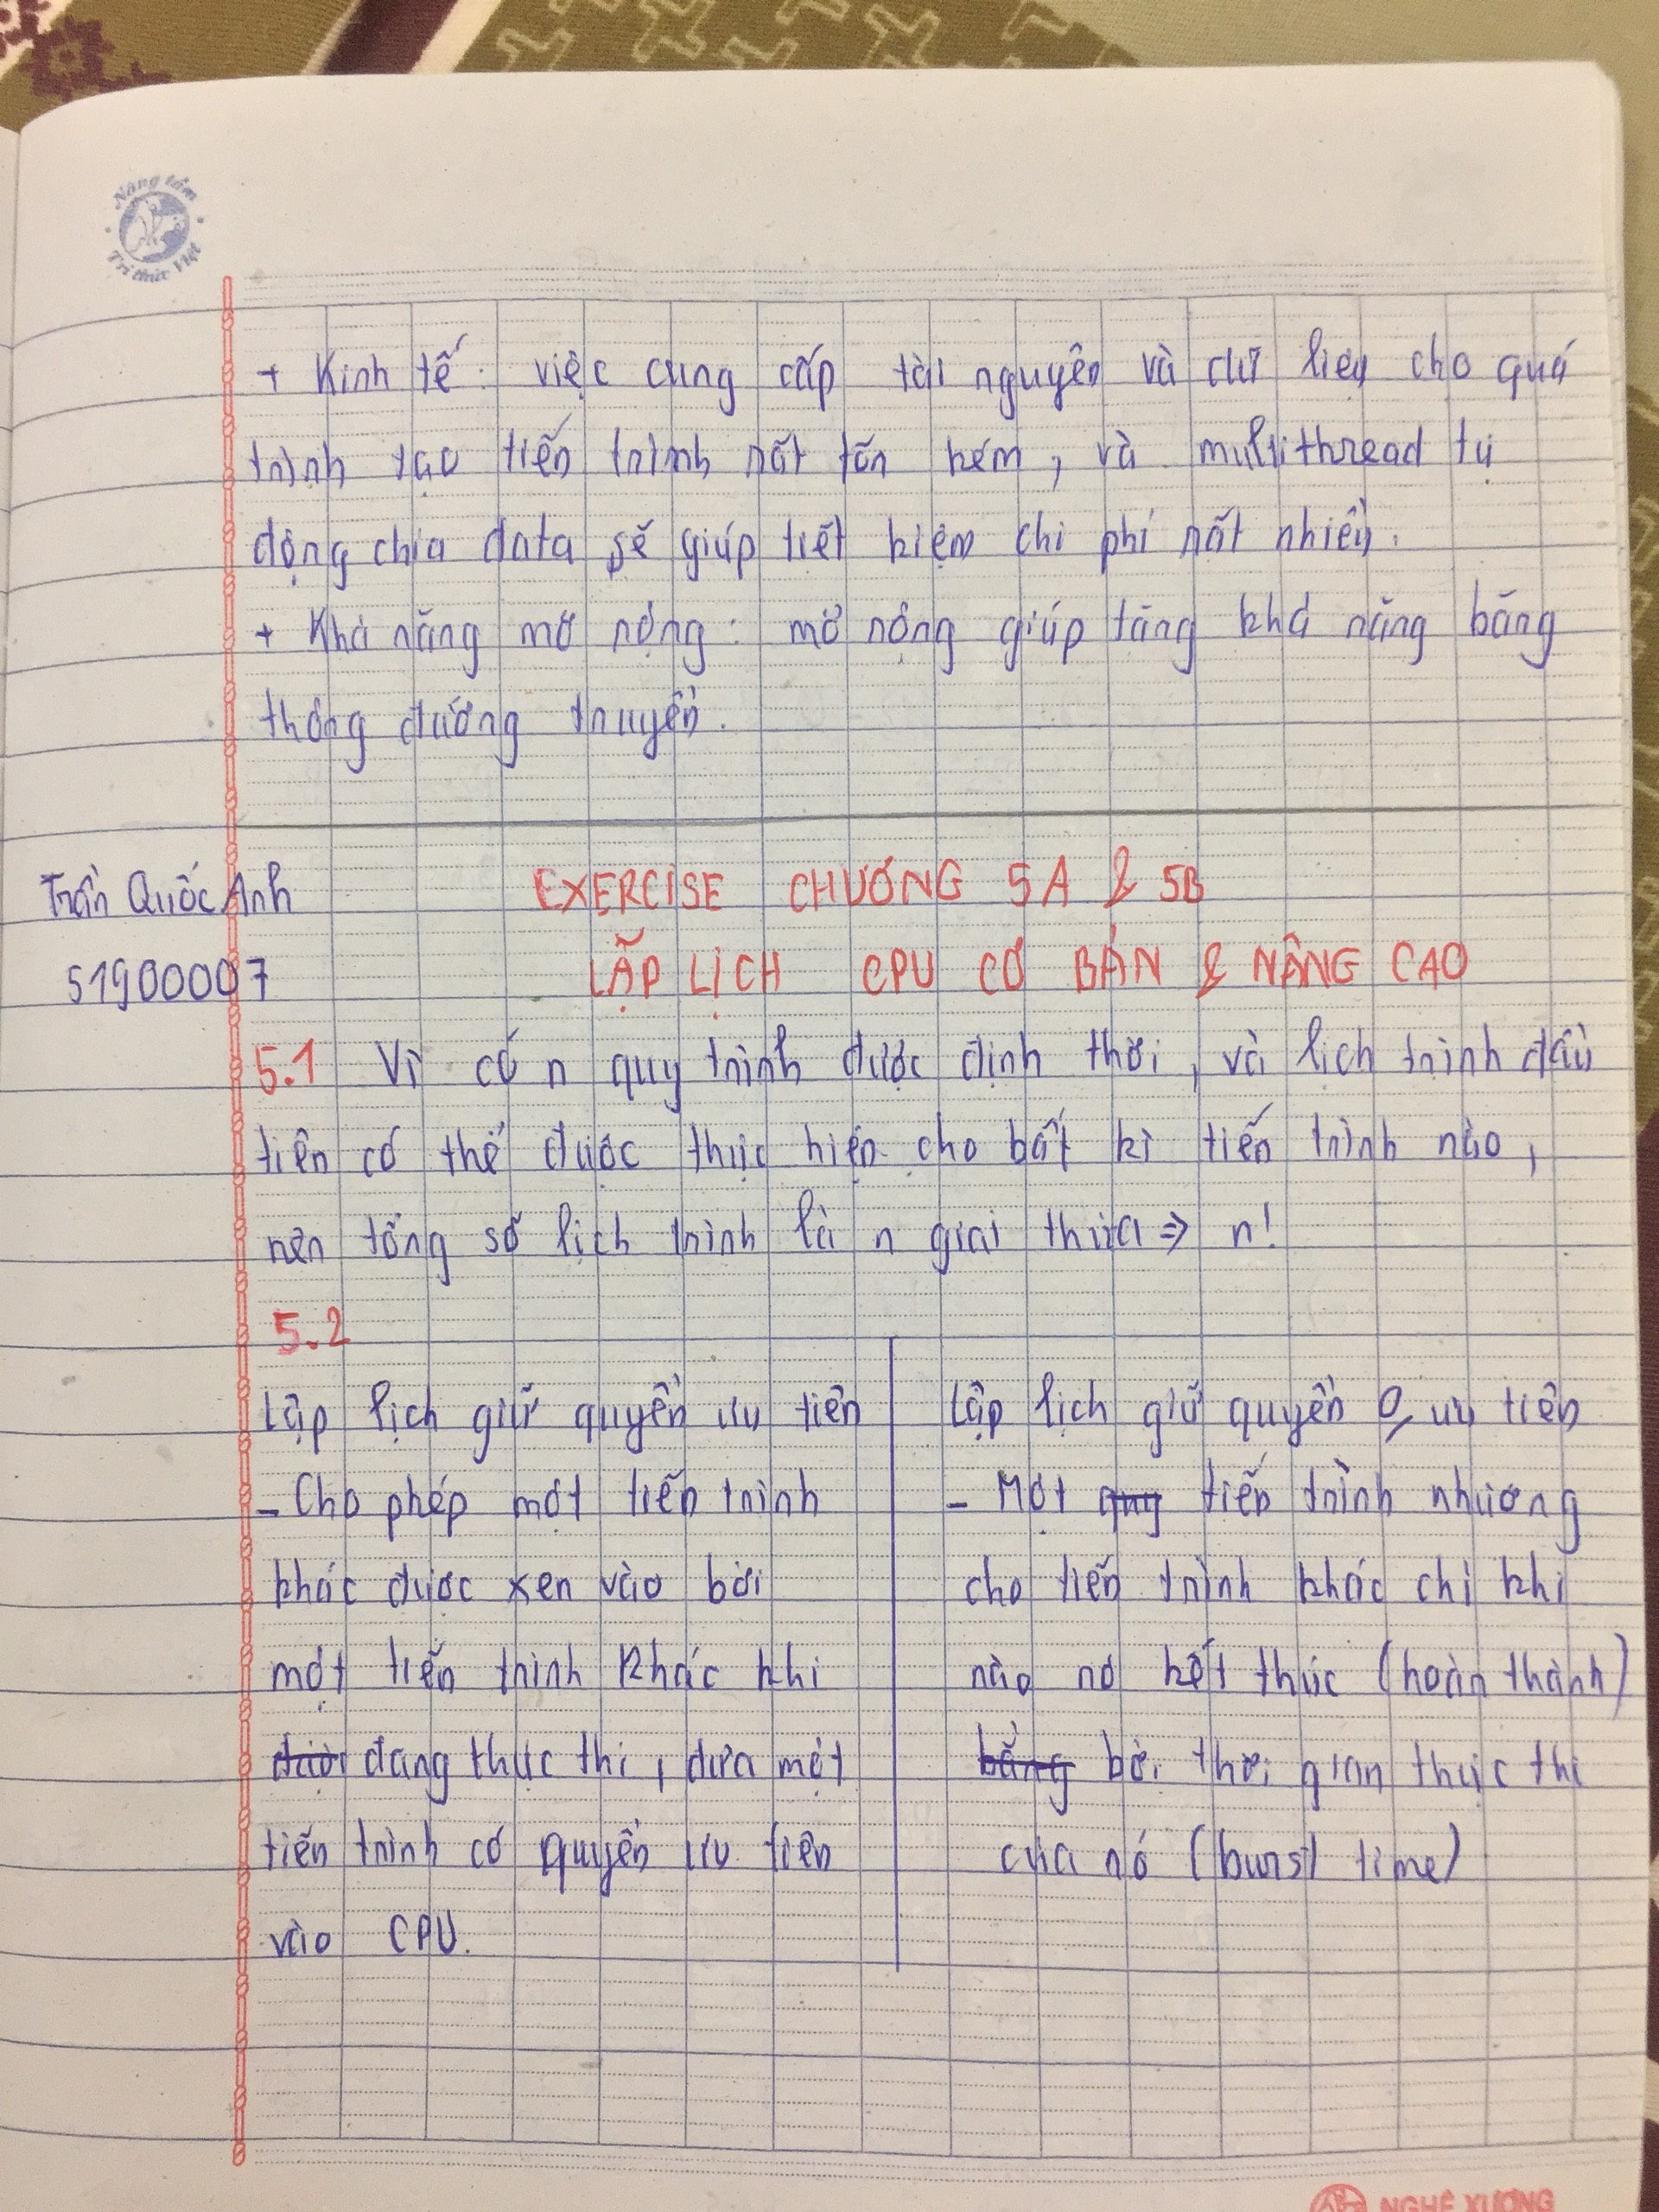 Nâng tầm
Tri thức Việt
+ Kinh tế: việc cung cấp tài nguyên và dữ liệu cho quá
trình tạo tiến trình rất tốn kém, và multithread tự
động chia data sẽ giúp tiết kiệm chi phí rất nhiều.
+ Khả năng mở rộng: mở rộng giúp tăng khả năng băng
thông đường truyền.
Trần Quốc Anh
51900007
EXERCISE CHƯƠNG 5A & 5B
LẬP LỊCH CPU CƠ BẢN & NÂNG CAO
5.1 Vì có n quy trình được định thời, và lịch trình đầu
tiên có thể được thực hiện cho bất kì tiến trình nào,
nên tổng số lịch trình là n giai thừa => n!
5.2
Lập lịch giữ quyền ưu tiên
- Cho phép một tiến trình
khác được xen vào bởi
một tiến trình khác khi
đang thực thi, đưa một
tiến trình có quyền ưu tiên
vào CPU.
Lập lịch giữ quyền ưu tiên
- Một tiến trình nhường
cho tiến trình khác chỉ khi
nào nó kết thúc (hoàn thành)
bằng bởi thời gian thực thi
của nó (burst time)
NGHỆ XƯƠNG